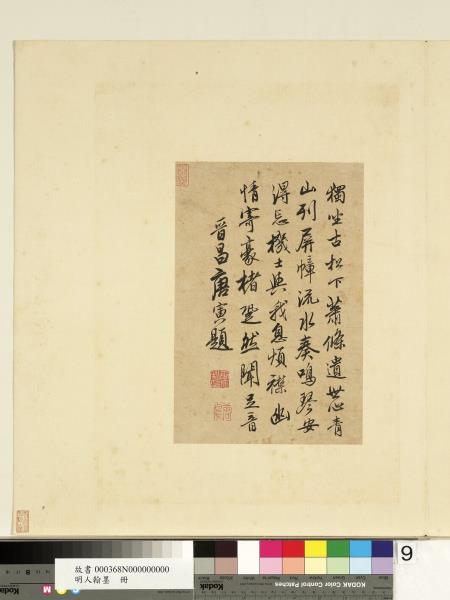 獨坐古松下蕭條遺世心青
山列屏幛流水奏鳴琴安
得忘機士與我息煩襟幽
情寄豪楮跫然聞足音
晉昌唐寅題
故書 000368N000000000
明人翰墨 冊
KODAK Color Control Patches
Kodak
9